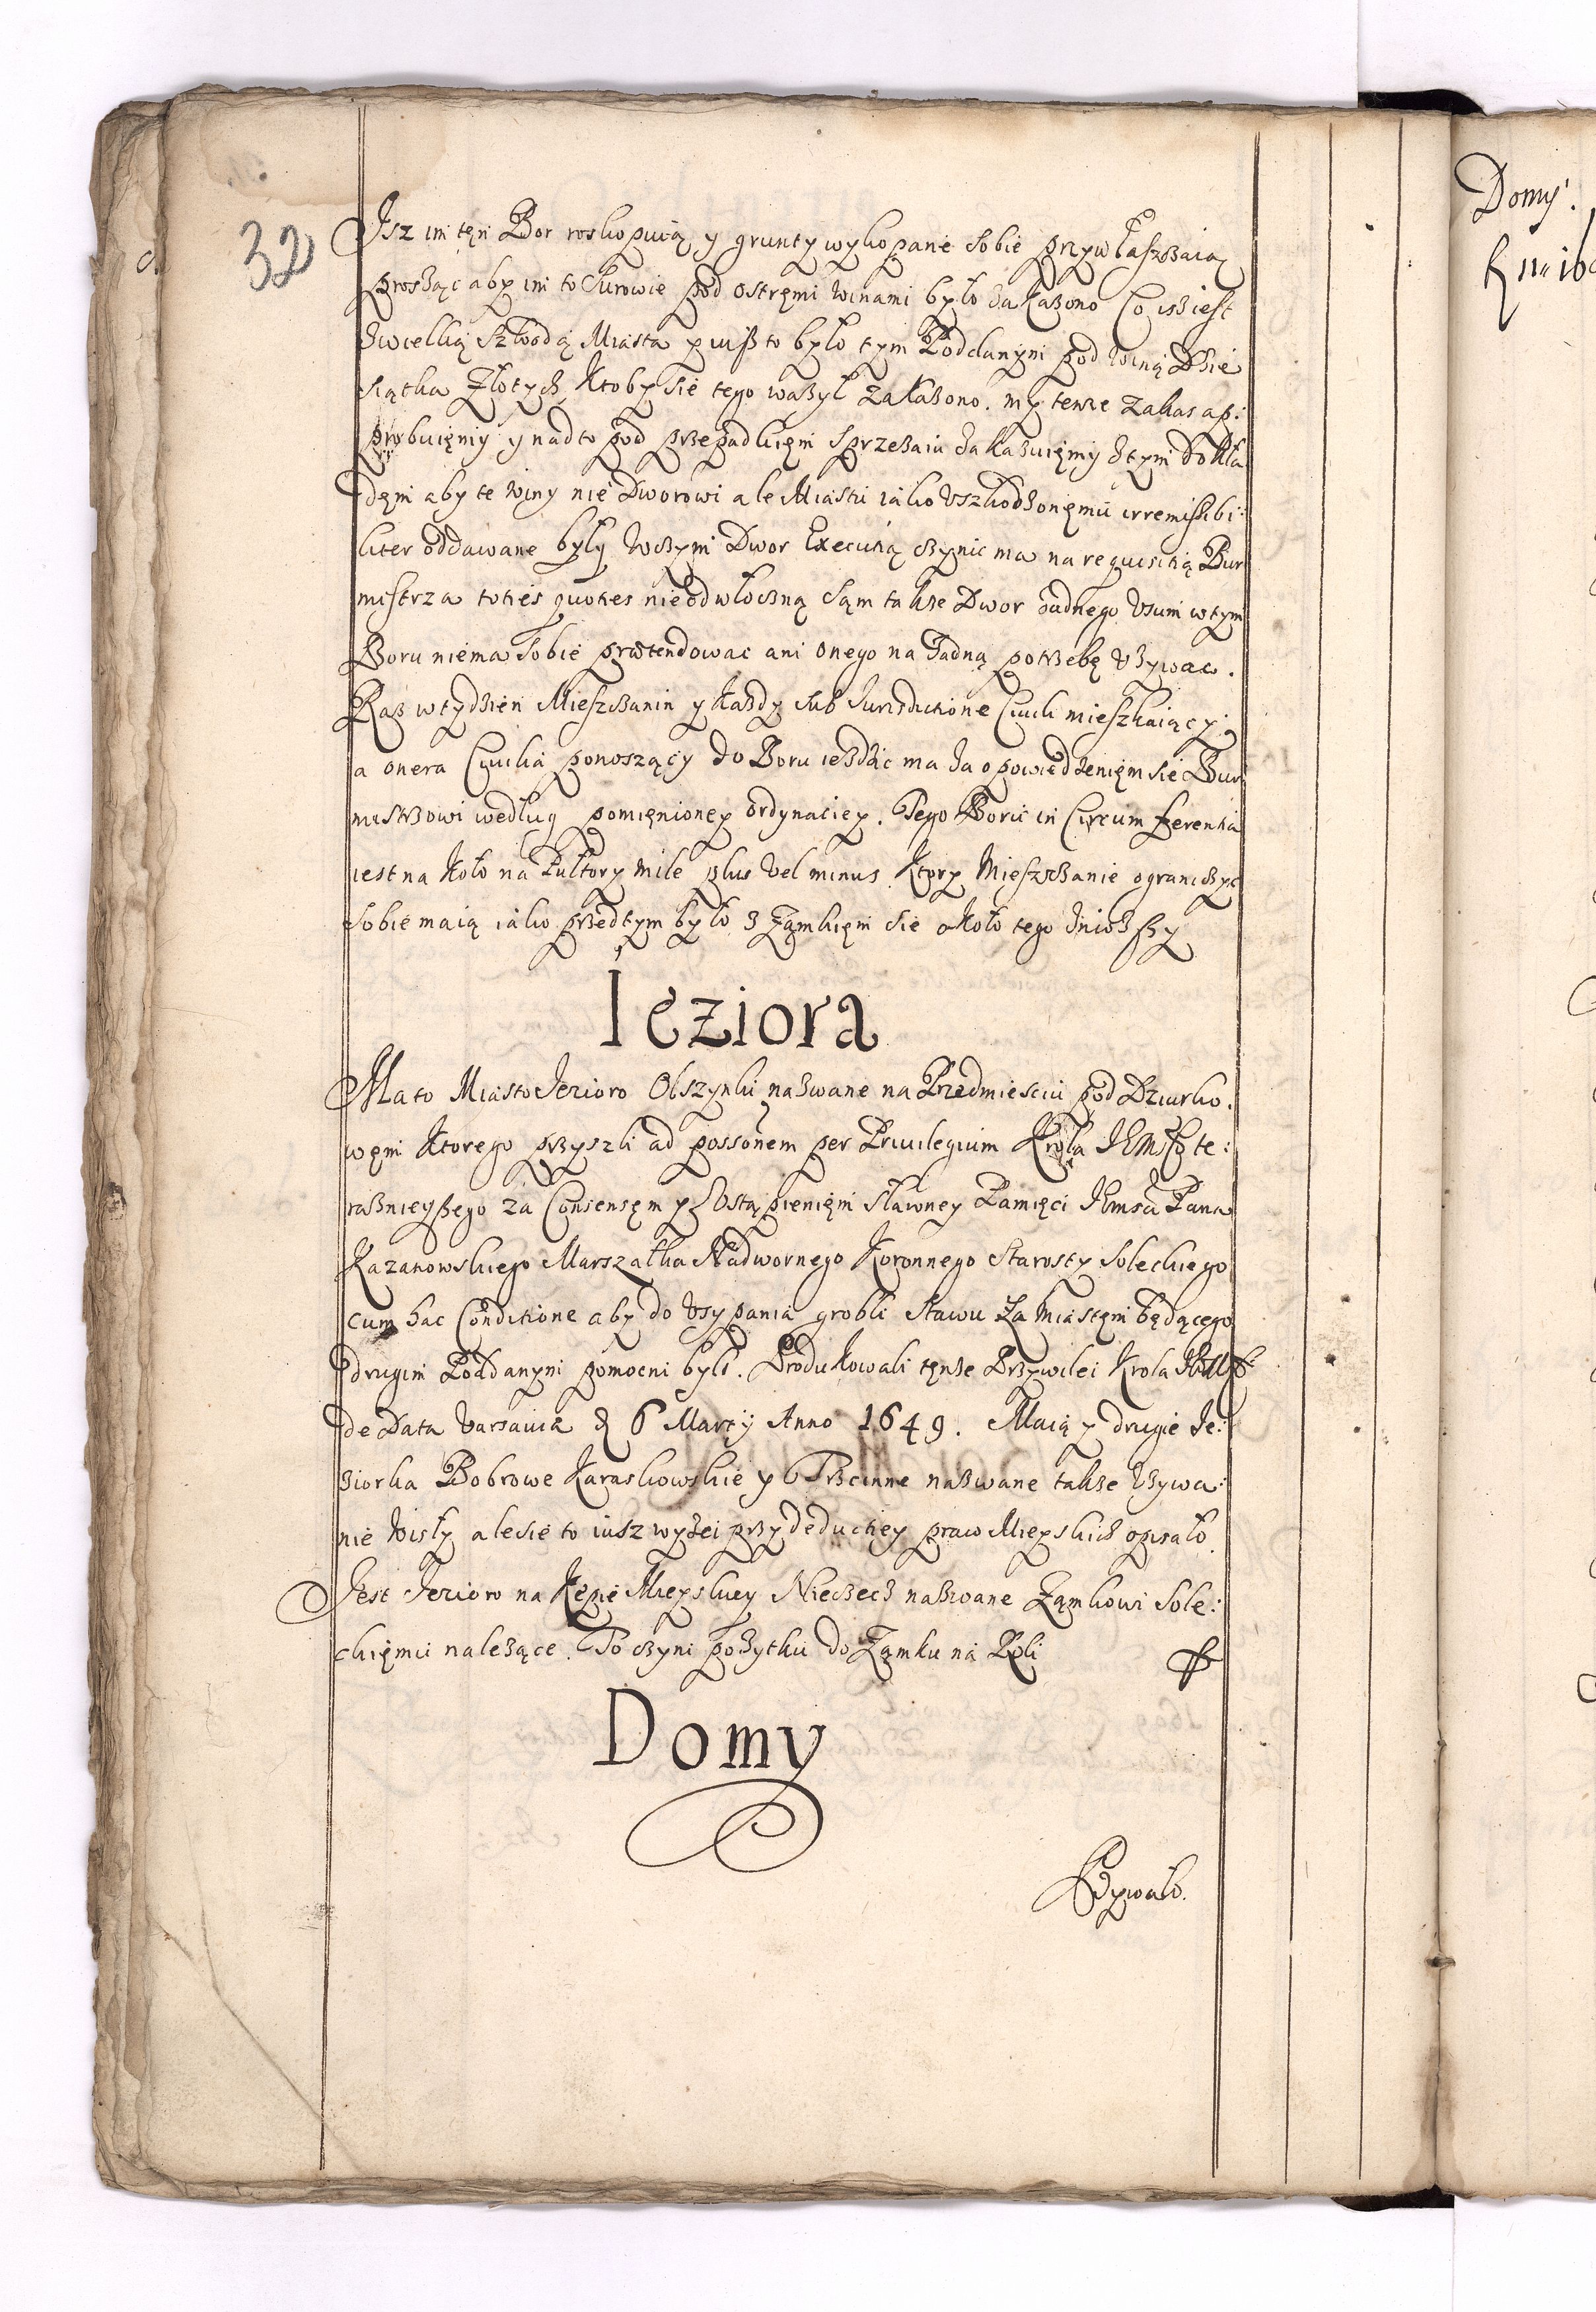 32
Isz im tęn Bor roskopuią y grunty wykopane sobie przywłaszbaią
prosząc aby im to surowie pod ostręmi winami było zakazono Co isz iest
z wielką szkodą Miasta y iusz to było tym Poddanym pod winą Dzie
siątka Złotych Ktoby sie tego wazył zakazono. my tenze zakas ap:
probuięmy y nadto pod przepadkięm sprzezaiu zakazuięmy z tym dokła
dęm aby te winy nie Dworowi ale Miastu iako Uszkodzonęmu irremissibi:
liter oddawane były w czym Dwor Executią czynic ma na requisitią Bur
mistrza toties quoties nieodwłoczną Sąm takze Dwor zadnego Usum w tym
Boru niema sobie prætendowac ani onego na zadną potrzebę Uzywac.
Raz w tydzien Mieszczanin y kazdy sub Jurisdictione Ciuili mieszkaiący;
a onera Ciuilia ponoszący do Boru iezdzic ma za opowiedzenięm sie Bur
mistrzowi według pomięnioney ordynaciey. Tego Boru in Circumferentia
iest na koło na Pułtory mile plus vel minus. Ktory Mieszczanie ograniczyc
sobie maią iako przedtym było z Zamkięm sie około tego zniozszy
Ieziora
Ma to Miasto Jezioro Olszynki nazwane na Przedmiesciu pod Dziurko.
węm Ktorego przyszli ad possonem per Priuilegium Krola JEMsci te:
raznieyszego za Consensęm y Ustąpienięm sławney Pamięci Jemsci Pana
Kazanowskiego Marszałka Nadwornego Koronnego Starosty Soleckiego
cum hac Conditione aby do Usypania grobli stawu za miastęm będącego
drugim Poddanym pomocni byli. Produkowali tęnze Przywilei Krola JEMsci
de Data Varsauiæ d 6 Martÿ Anno 1649. Maią y drugie Je:
ziorka Bobrowe Karaskowskie y Trzcinne nazwane takze Uzywa:
nie Wisły ale sie to iusz wyzei przy deductiey praw Mieyskich opisało.
Jest Jezioro na Kępie Mieyskiey Nieczecz nazwane Zamkowi Sole:
ckięmu nalezące. To czyni pozytku do Zamku na Roli
Domy
Bywało.
Domy.